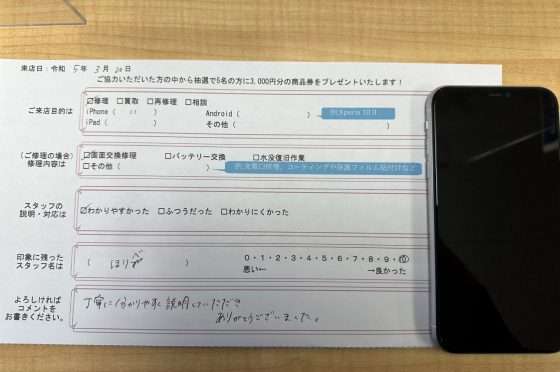 来店日：令和 5年 3月 20日
ご協力いただいた方の中から抽選で5名の方に3,000円分の商品券をプレゼントいたします！
ご来店目的は
☑修理 □買取 □再修理 □相談
iPhone（ 11 ） Android（ ） 例）Xperia 10Ⅲ
iPad（ ） その他（ ）
（ご修理の場合）
修理内容は
☑画面交換修理 □バッテリー交換 □水没復旧作業
□その他（ ）
スタッフの
説明・対応は
☑わかりやすかった □ふつうだった □わかりにくかった
印象に残った
スタッフ名は
（ ）
0・1・2・3・4・5・6・7・8・9・10
悪い← →良かった
よろしければ
コメントを
お書きください。
丁寧に分かりやすく説明していただき
ありがとうございました。